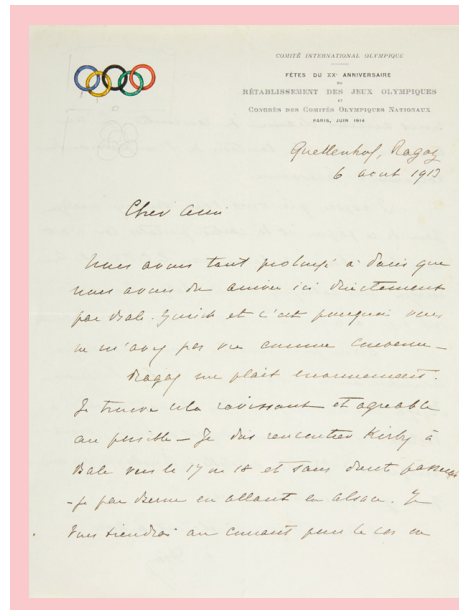 COMITÉ INTERNATIONAL OLYMPIQUE
FÊTES DU XXᵉ ANNIVERSAIRE
DU
RÉTABLISSEMENT DES JEUX OLYMPIQUES
ET
CONGRÈS DES COMITÉS OLYMPIQUES NATIONAUX
PARIS, JUIN 1914
Quellenhof, Ragaz
6 aout 1913
Cher ami
Nous avons tant prolongé à Paris que
nous avons du arriver ici directement
par Bale. Zurich et c'est pourquoi vous
ne m'avez pas vu comme convenu –
Ragaz me plait enormement.
Je trouve cela ravissant et agreable
au possible – Je dois rencontrer Kirby à
Bale vers le 17 ou 18 et sans doute passerai
-je par Berne en allant en Alsace. Je
vous tiendrai au courant pour le cas ou